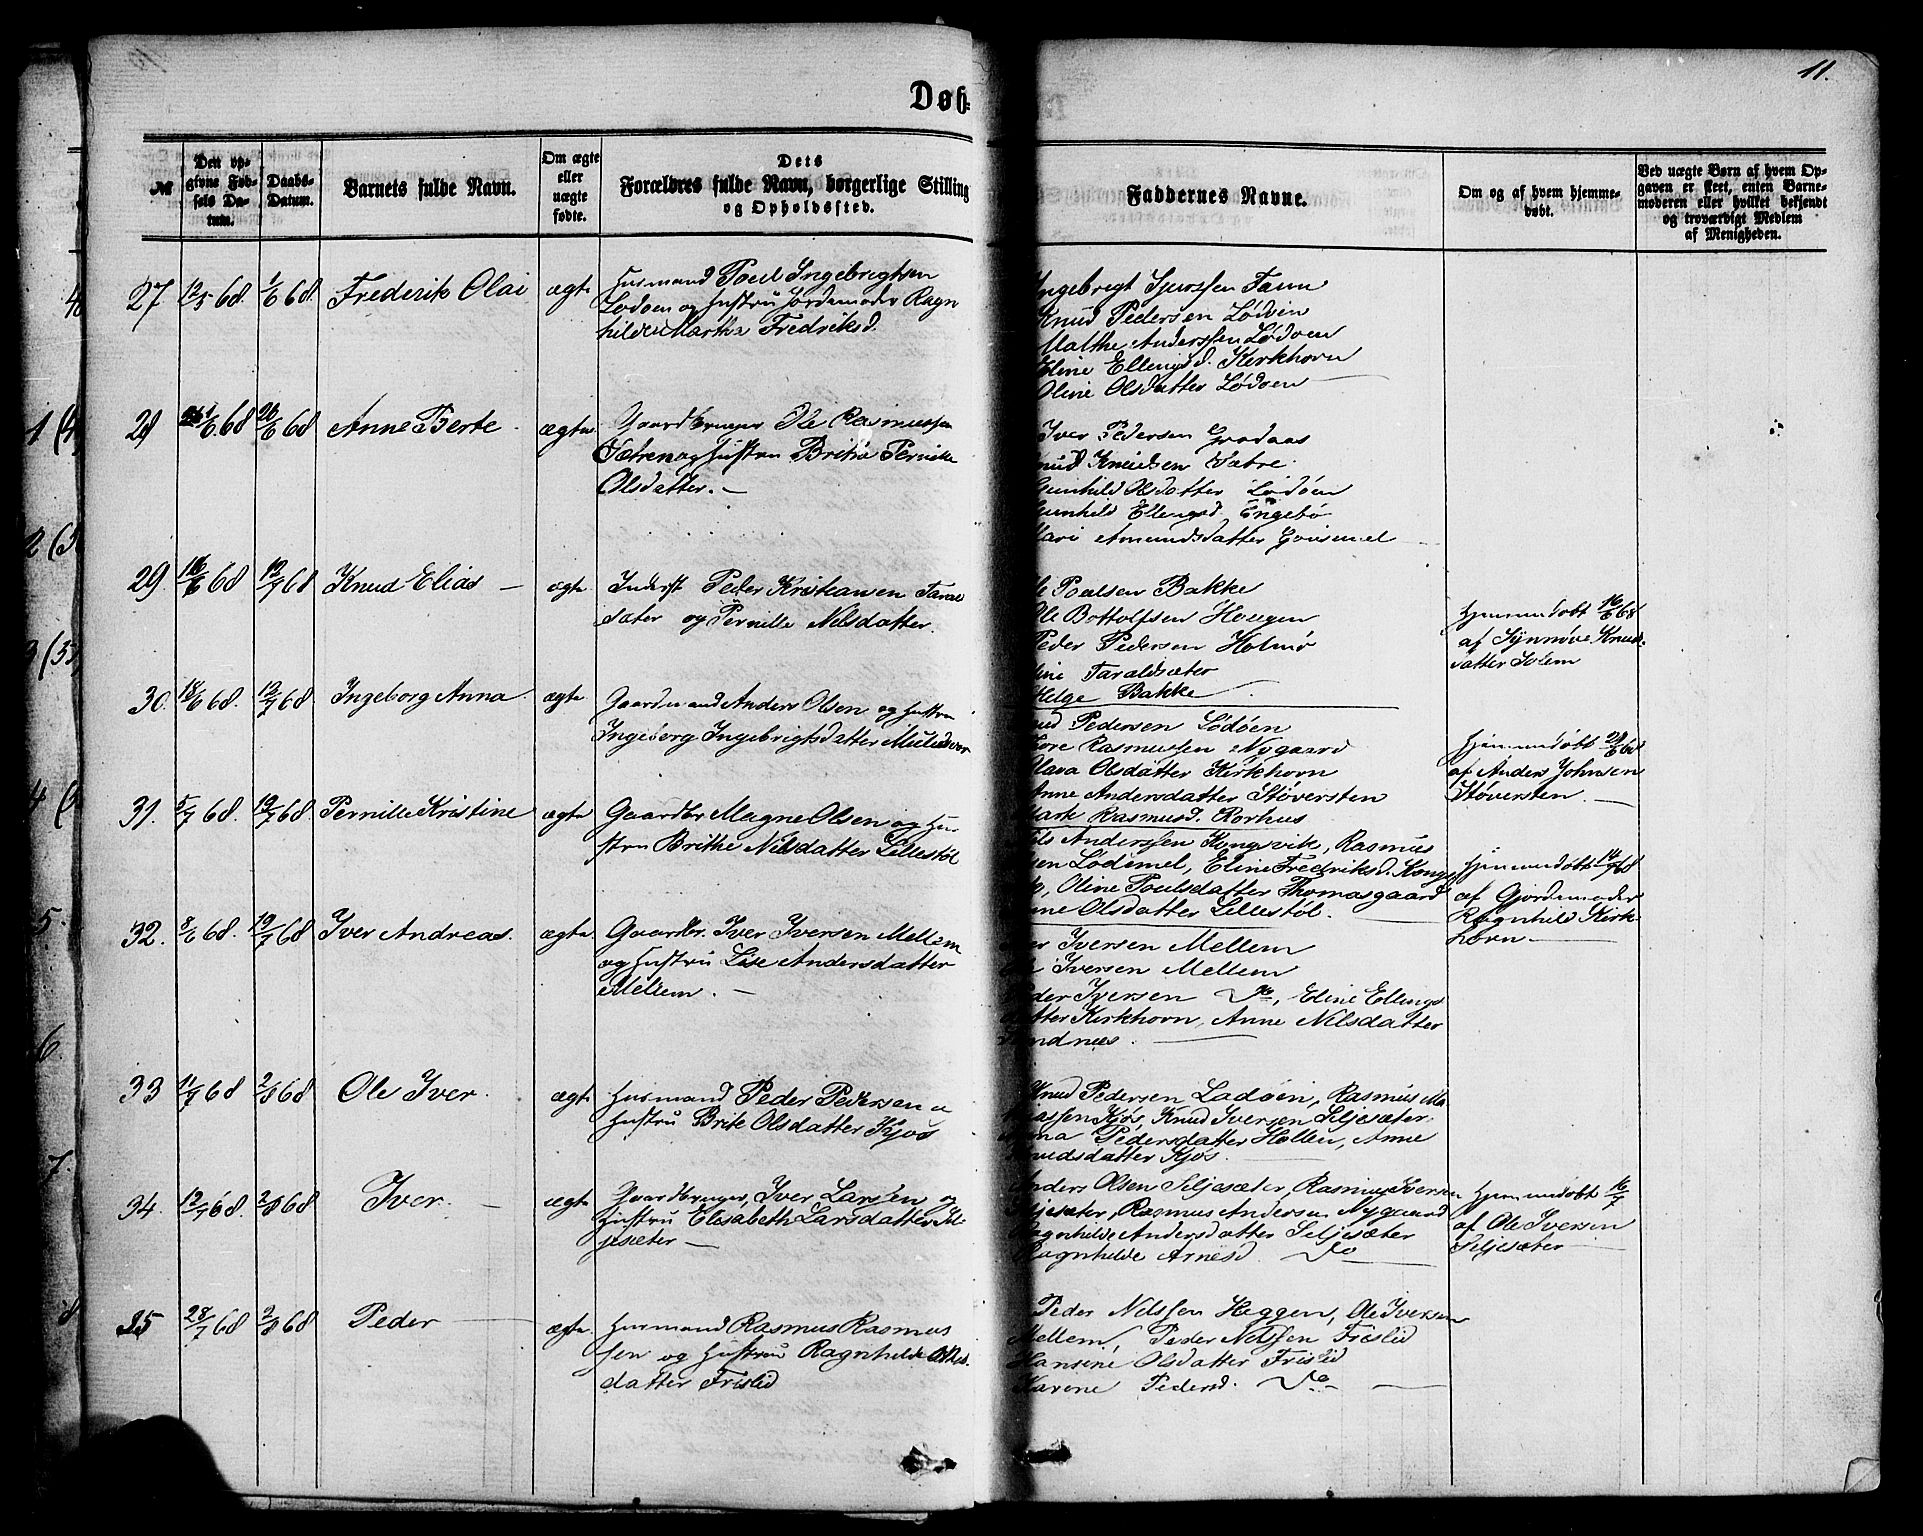 11.
Døb-
№
Den op-
givne Fød-
sels Da-
tum.
Daabs-
Datum.
Barnets fulde Navn.
Om ægte
eller
uægte
fødte.
Dets
Forældres fulde Navn, borgerlige Stilling
og Opholdssted.
Faddernes Navne.
Om og af hvem hjemme-
døbt.
Ved uægte Børn af hvem Op-
gaven er skeet, enten Barne-
moderen eller hvilket bekjendt
og troværdigt Medlem
af Menigheden.
27 12/5 68. 1/6 68. Frederik Olai ægte
Husmand Poul Ingebrigtsen
Lødøen og Hustru Jordemoder Ragn
hilde Martha Fredriksd.
Ingebrigt Sjurssen
Knud Pedersen Lødøen
Malthe Anderssen Lødøen
Eline Ellengsd. Kirkhorn
Oline Olsdatter Lødøen
28 /6 68 28/6 68 Anne Berte ægte.
Gaardbruger Ole Rasmussen
Sætren og Hustru Brithe Pernille
Olsdatter. —
Iver Pedersen Grodaas
Knud Knudsen Sætre.
Gunhild Olsdatter Lødøen
Gunhild Ellengsd. Engebø
Mari Amundsdatter
29. 16/6 68 12/7 68 Knud Elias — ægte
Inderst Peder Kristiansen Taral
sæter og Pernille Nelsdatter.
Ole Poulsen Bakke
Ole Bottolfsen Hougen
Peder Pedersen Holmø
Taraldsæter
Helge Bakke
Hjemmedøbt 16/6 68
af Synnøve Knuds-
datter Solem
30. 18/6 68. 12/7 68. Ingeborg Anna ægte
Gaardmand Anders Olsen og Hustru
Ingeborg Ingebrigtsdatter
Knud Pedersen Lødøen
Tore Rasmussen Nygaard
Olava Olsdatter Kirkhorn
Anne Andersdatter Støversten
Mark Rasmusd. Rorhus
Hjemmedøbt 28/6 68
af Anders Johnsen
Støversten. —
31. 5/7 68. 19/7 68. Pernille Kristine ægte
Gaardbr Magne Olsen og Hu
stru Brithe Nilsdatter Lillestøl
Nils Anderssen Kongsvik, Rasmus
sen Lødemel, Eline Fredriksd. Kongs
vik, Oline Poulsdatter Thomasgaard
Anne Olsdatter Lillestøl.
Hjemmedøbt 14/7 68
af Gjordemoder
Ragnhild Kirk-
horn —
32. 8/6 68. 19/7 68 Iver Andreas. ægte
Gaardbr. Iver Iversen Mellem
og Hustru Lise Andersdatter
Mellem. —
Iver Iversen Mellem
Ole Iversen Mellem
Peder Iversen do, Eline Ellings
datter Kirkhorn, Anne Nilsdatter
Sandnæs.
33 11/7 68 2/8 68 Ole Iver. ægte
Husmand Peder Pedersen o
Hustru Brite Olsdatter Kjøs
Knud Pedersen Lødøen, Rasmus Ma
thiassen Kjøs, Knud Iversen Seljesæter.
Anna Pedersdatter Hollen, Anne
Knudsdatter Kjøs.
34. 12/7 68. 2/8 68 Iver. — ægte
Gaardbruger Iver Larsen og
Hustru Elisabeth Larsdatter Sel-
jesæter —
Anders Olsen Seljesæter, Rasmus Iversen
Seljesæter, Rasmus Andersen Nygaard
Ragnhilde Andersdatter Seljesæter
Ragnhilde Arnesd. do
Hjemmedøbt 16/7
af Ole Iversen
Seljesæter
35 28/7 68 2/8 68 Peder — ægte.
Husmand Rasmus Rasmus
sen og Hustru Ragnhilde Ols
datter Frislid
Peder Nelssen Heggen, Ole Iversen
Mellem, Peder Nelssen Frislid
Hansine Olsdatter Frislid
Karene Pedersd. do —